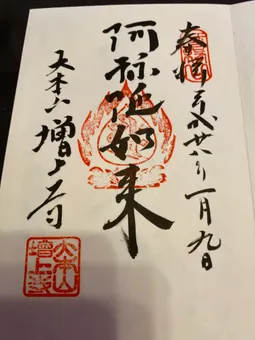 奉拝 平成廿 年一月九日
阿弥陀如来
大本山 増上寺
大本山
増上寺